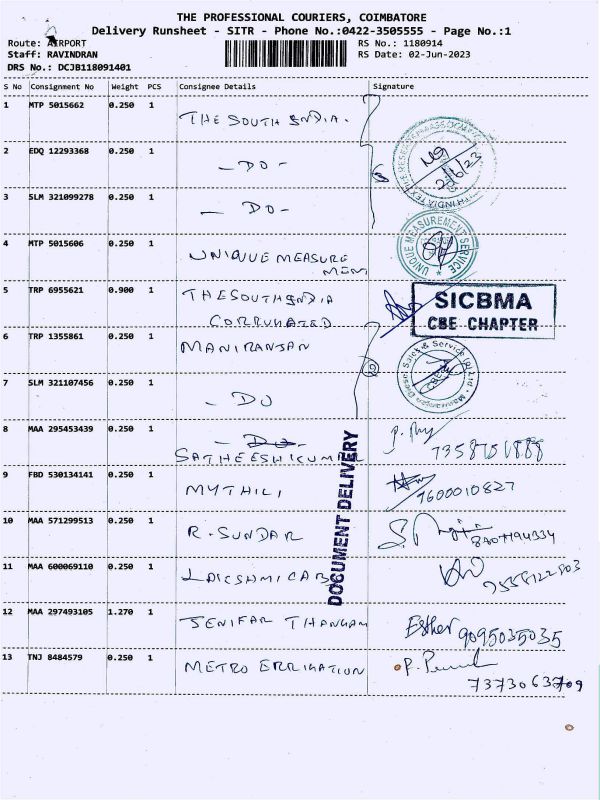 THE PROFESSIONAL COURIERS, COIMBATORE
Delivery Runsheet - SITR - Phone No.:0422-3505555 - Page No.:1
Route: AIRPORT RS No.: 1180914
Staff: RAVINDRAN RS Date: 02-Jun-2023
DRS No.: DCJB118091401
S No Consignment No Weight PCS Consignee Details Signature
1 MTP 5015662 0.250 1 THE SOUTH INDIA.
2 EDQ 12293368 0.250 1 - DO -
2/6/23
3 SLM 321099278 0.250 1 - DO -
4 MTP 5015606 0.250 1 UNIQUE MEASURE
MEM
UNIQUE MEASUREMENT SERVICE
5 TRP 6955621 0.900 1 THE SOUTH INDIA
CORRUHATED
SICBMA
CBE CHAPTER
6 TRP 1355861 0.250 1 MANIRANJAN
7 SLM 321107456 0.250 1 - DO
8 MAA 295453439 0.250 1 - DO -
SATHEESHKUMAR
9 FBD 530134141 0.250 1 MYTHILI 9600010827
10 MAA 571299513 0.250 1 R. SUNDAR
11 MAA 600069110 0.250 1 LAKSHMI CAB
12 MAA 297493105 1.270 1 JENIFAR THANGAM Esther 9095035035
13 TNJ 8484579 0.250 1 METRO ERRIGATION
7373063709
DOCUMENT DELIVERY